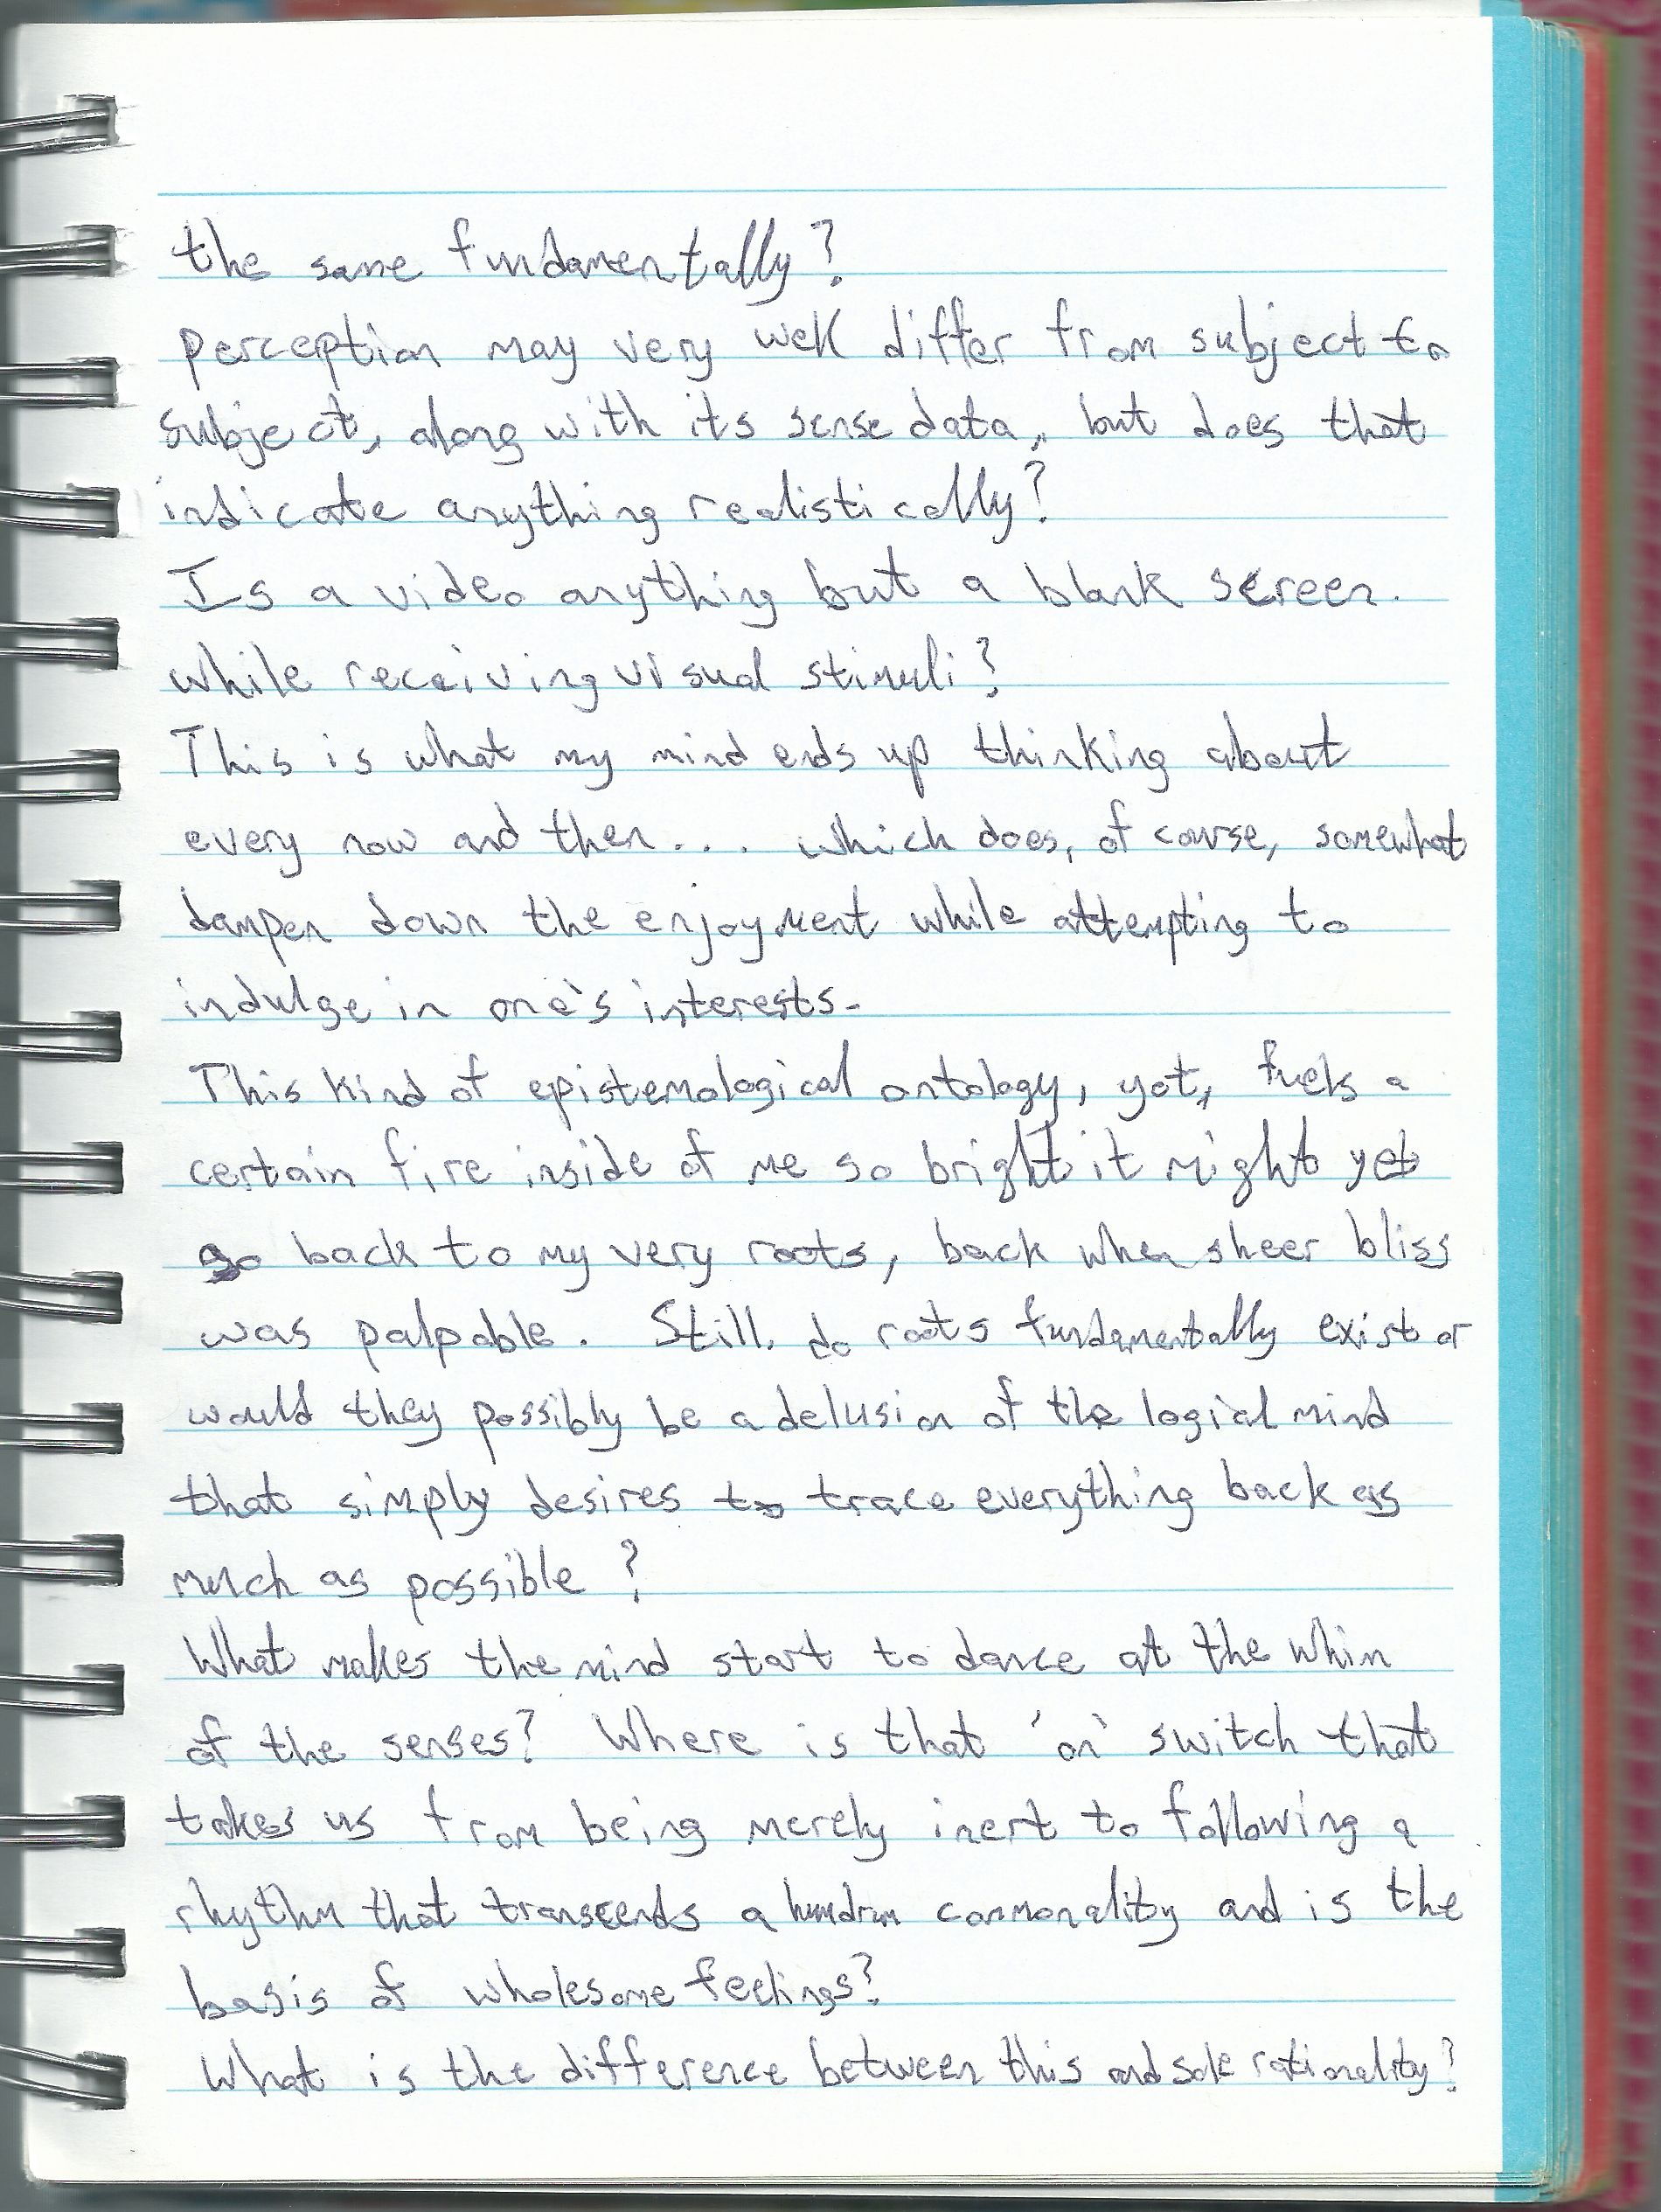 the same fundamentally?
perception may very well differ from subject to
subject, along with its sense data, but does that
indicate anything realistically?
Is a video anything but a blank screen.
while receiving visual stimuli?
This is what my mind ends up thinking about
every now and then... which does, of course, somewhat
dampen down the enjoyment while attempting to
indulge in one's interests.
This kind of epistemological ontology, yet, fuels a
certain fire inside of me so bright it might yet
go back to my very roots, back when sheer bliss
was palpable. Still, do roots fundamentally exist or
would they possibly be a delusion of the logial mind
that simply desires to trace everything back as
much as possible?
What makes the mind start to dance at the whim
of the senses? Where is that 'on' switch that
takes us from being merely inert to following a
rhythm that transcends a humdrum commonality and is the
basis of wholesome feelings?
What is the difference between this and sole rationality?